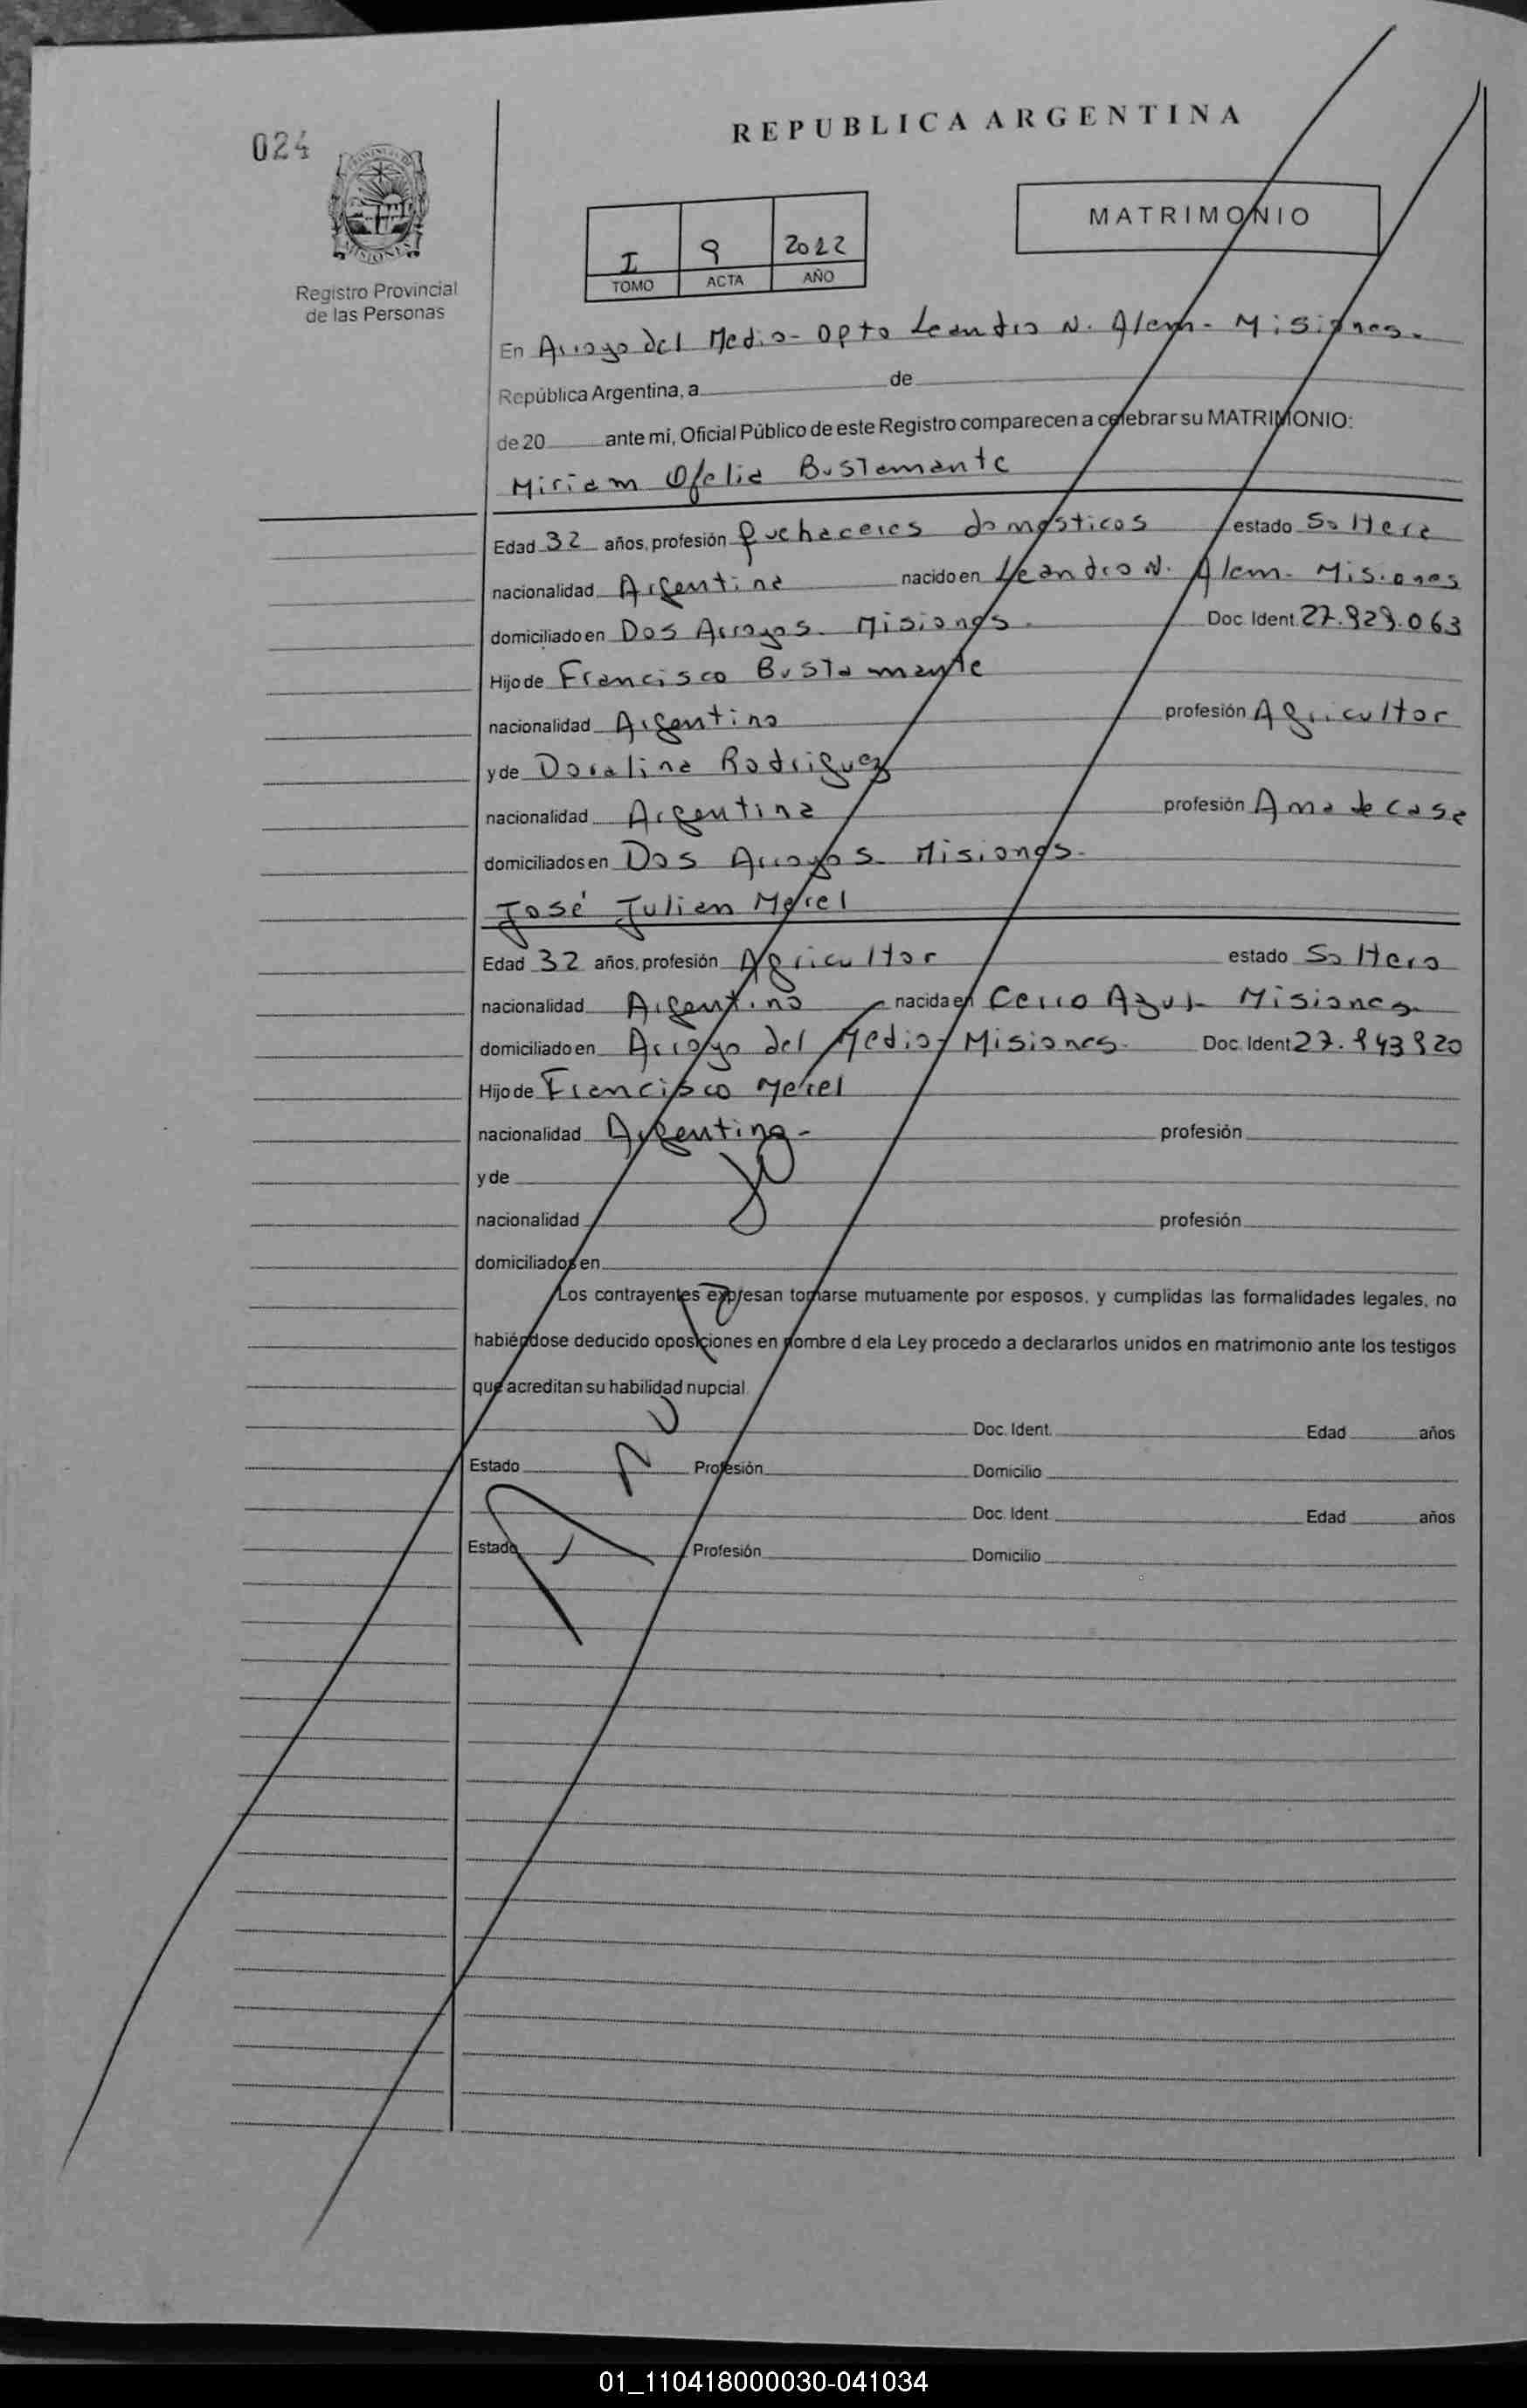 REPUBLICA ARGENTINA
024
PROVINCIA DE
MISIONES
MATRIMONIO
I 9 2022
TOMO ACTA AÑO
Registro Provincial
de las Personas
En Arroyo del Medio - Dpto Leandro N. Alem - Misiones.
República Argentina, a de
de 20 ante mí, Oficial Público de este Registro comparecen a celebrar su MATRIMONIO:
Miriam Ofelia Bustamante
Edad 32 años, profesión Quehaceres domésticos estado Soltera
nacionalidad Argentina nacido en Leandro N. Alem - Misiones
domiciliado en Dos Arroyos - Misiones. Doc. Ident. 27.929.063
Hijo de Francisco Bustamante
nacionalidad Argentino profesión Agricultor
y de Doralina Rodriguez
nacionalidad Argentina profesión Ama de casa
domiciliados en Dos Arroyos - Misiones.
José Julian Merel
Edad 32 años, profesión Agricultor estado Soltero
nacionalidad Argentino nacida en Cerro Azul - Misiones
domiciliado en Arroyo del Medio - Misiones. Doc. Ident.
Hijo de Francisco Merel
nacionalidad Argentina - profesión
y de
nacionalidad profesión
domiciliados en
Los contrayentes expresan tomarse mutuamente por esposos, y cumplidas las formalidades legales, no
habiéndose deducido oposiciones en nombre d ela Ley procedo a declararlos unidos en matrimonio ante los testigos
que acreditan su habilidad nupcial.
Doc. Ident. Edad años
Estado Profesión Domicilio
Doc. Ident. Edad años
Estado Profesión Domicilio
01_110418000030-041034